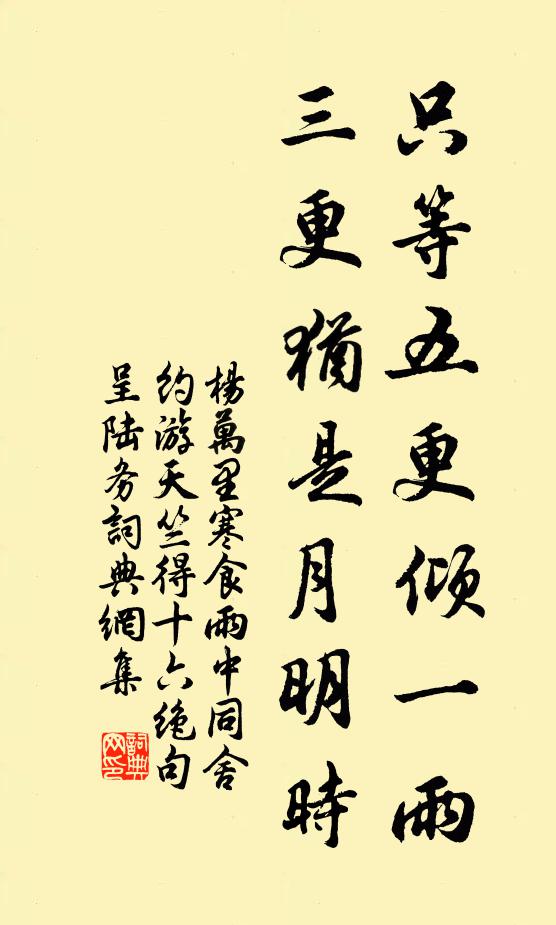 只等五更傾一雨
三更猶是月明時
楊萬里寒食雨中同舍
約游天竺得十六絶句
呈陆务詞典網集
詞典
网印